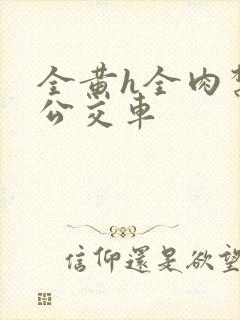 全黄h全肉
公交車
信仰還是欲望